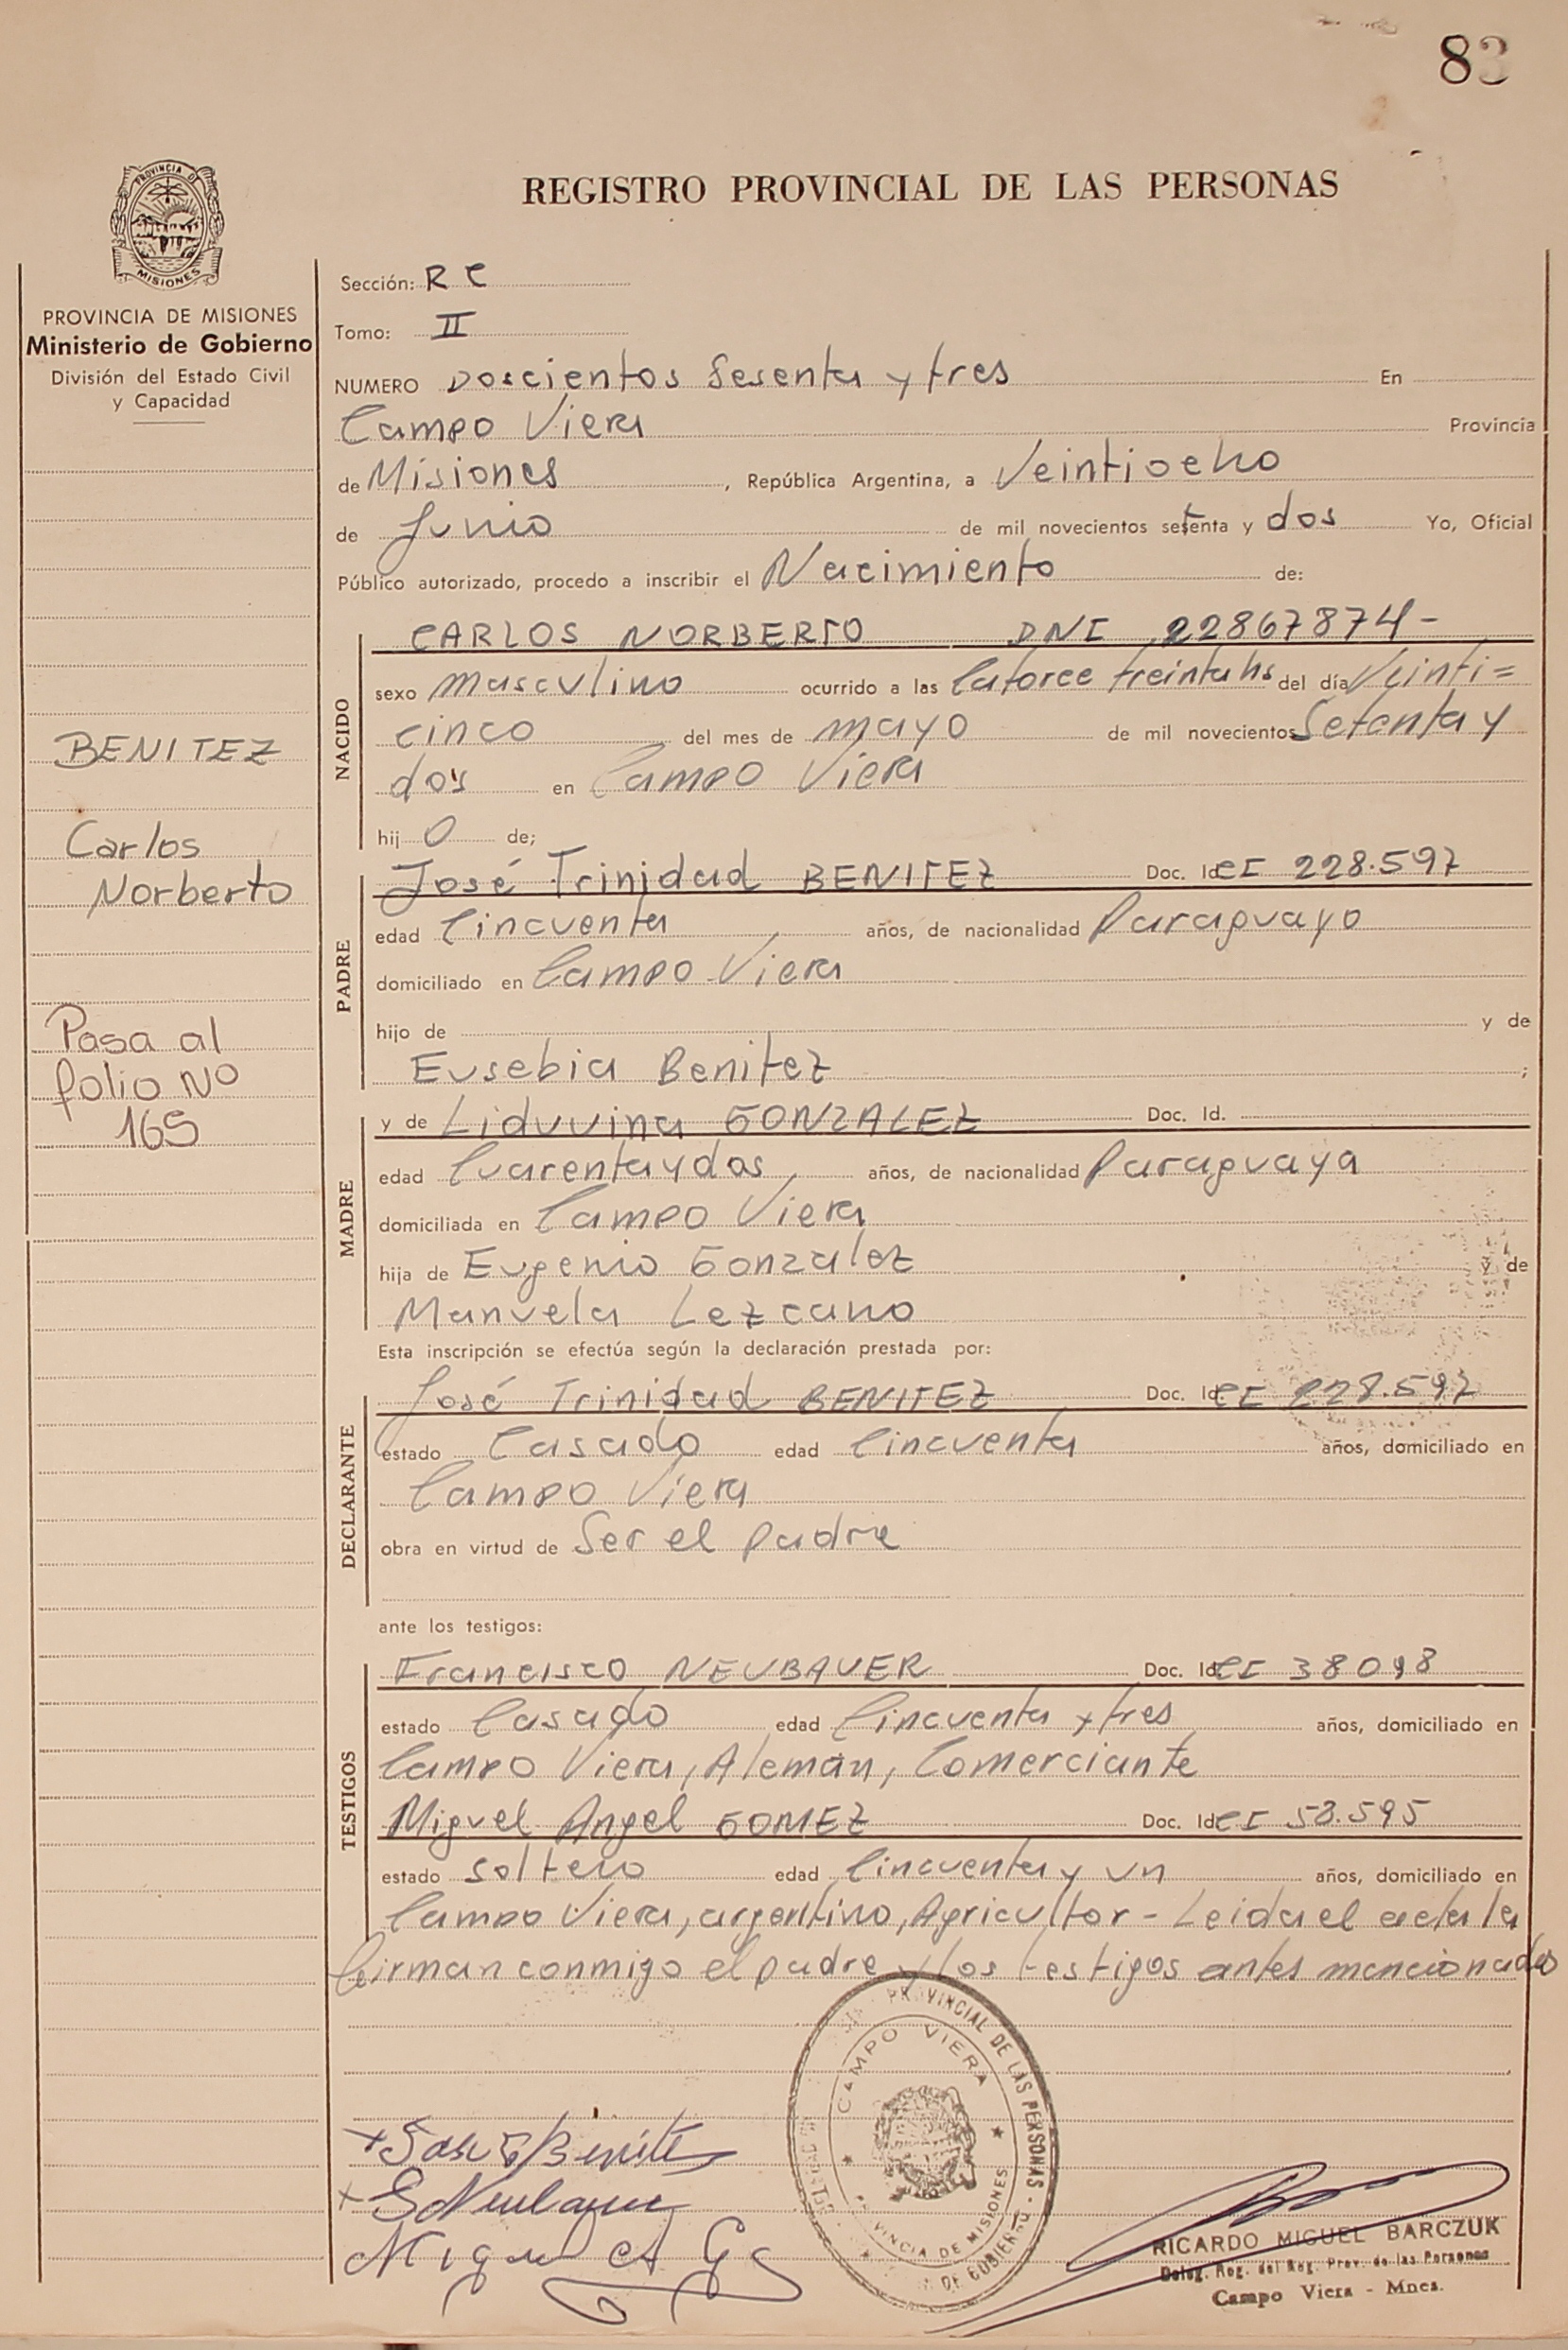 83
PROVINCIA DE
MISIONES
REGISTRO PROVINCIAL DE LAS PERSONAS
PROVINCIA DE MISIONES
Ministerio de Gobierno
División del Estado Civil
y Capacidad
BENITEZ
Carlos
Norberto
Pasa al
folio No
165
Sección: R C
Tomo: II
NUMERO Doscientos Sesenta y tres En
Campo Viera Provincia
de Misiones, República Argentina, a Veintiocho
de Junio de mil novecientos setenta y dos Yo, Oficial
Público autorizado, procedo a inscribir el Nacimiento de:
NACIDO
CARLOS NORBERTO DNI 22867874-
sexo masculino ocurrido a las Catorce treinta hs del día Veinti=
cinco del mes de mayo de mil novecientos Setenta y
dos en Campo Viera
hij O de;
PADRE
José Trinidad BENITEZ Doc. Id. CI 228.597
edad Cincuenta años, de nacionalidad Paraguayo
domiciliado en Campo Viera
hijo de y de
Eusebia Benitez ;
MADRE
y de Liduvina GONZALEZ Doc. Id.
edad Cuarenta y dos años, de nacionalidad Paraguaya
domiciliada en Campo Viera
hija de Eugenio Gonzalez y de
Manuela Lezcano
Esta inscripción se efectúa según la declaración prestada por:
DECLARANTE
José Trinidad BENITEZ Doc. Id. CI 228.597
estado Casado edad Cincuenta años, domiciliado en
Campo Viera
obra en virtud de Ser el padre
ante los testigos:
TESTIGOS
Francisco NEUBAUER Doc. Id. CI 38098
estado Casado edad Cincuenta y tres años, domiciliado en
Campo Viera, Alemán, Comerciante
Miguel Angel GOMEZ Doc. Id. CI 53.595
estado soltero edad Cincuenta y un años, domiciliado en
Campo Viera, argentino, Agricultor - Leida el acta la
firman conmigo el padre y los testigos antes mencionados
PROVINCIAL DE LAS PERSONAS - DE GOBIERNO
CAMPO VIERA
PROVINCIA DE MISIONES
+ Jose T Benitez
+ Neubauer
Miguel A G
RICARDO MIGUEL BARCZUK
Deleg. Reg. del Reg. Prov. de las Personas
Campo Viera - Mnes.